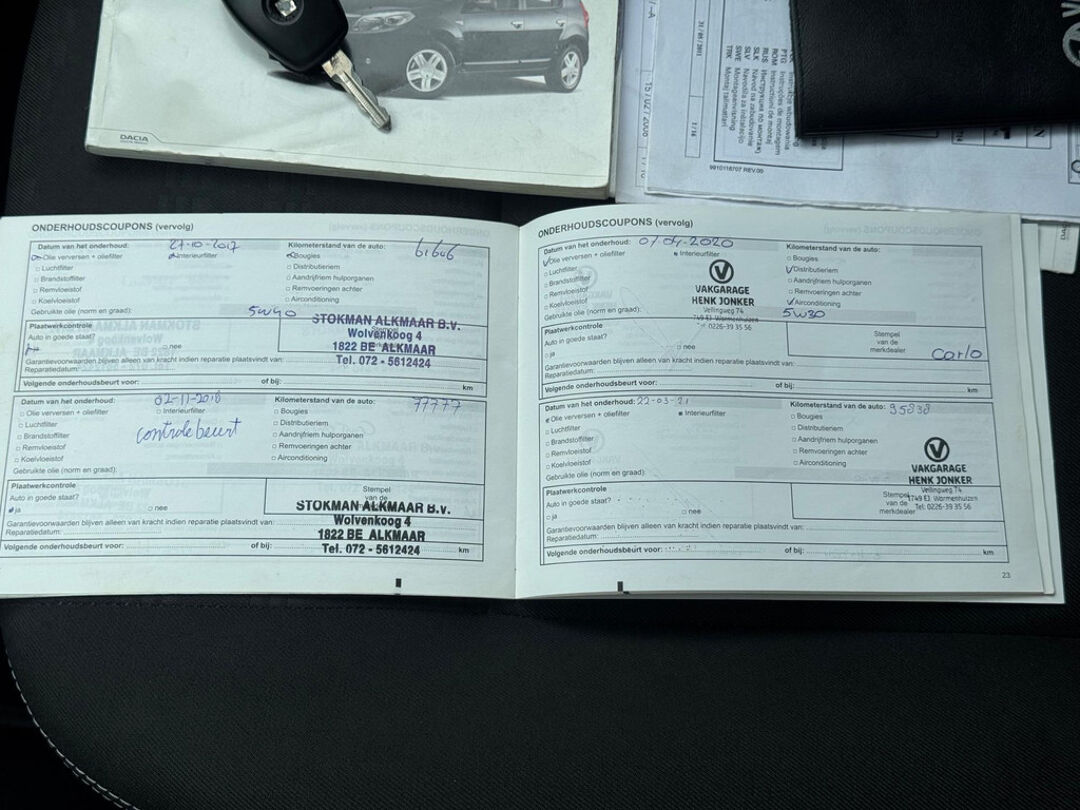 DACIA
31/05/2011
1/16
15/02/2008
PTG Instruções de montagem
ROM Instrucțiuni de montaj
RUS Инструкция по монтажу
SLK Návod na zabudovanie
SLV Navodila za instalacijo
SWE Montageanvisning
TRK Montaj talimatları
9910116707 REV.05
ONDERHOUDSCOUPONS (vervolg)
Datum van het onderhoud: 27-10-2017 Kilometerstand van de auto: 61646
Olie verversen + oliefilter Interieurfilter Bougies
Luchtfilter Distributieriem
Brandstoffilter Aandrijfriem hulporganen
Remvloeistof Remvoeringen achter
Koelvloeistof Airconditioning
Gebruikte olie (norm en graad): 5W40
STOKMAN ALKMAAR B.V.
Wolvenkoog 4
1822 BE ALKMAAR
Tel. 072 - 5612424
Plaatwerkcontrole
Auto in goede staat?
nee
Garantievoorwaarden blijven alleen van kracht indien reparatie plaatsvindt van:
Reparatiedatum:
Volgende onderhoudsbeurt voor: of bij: km
Datum van het onderhoud: 02-11-2018 Kilometerstand van de auto: 77777
Olie verversen + oliefilter Interieurfilter Bougies
Luchtfilter Distributieriem
Brandstoffilter controlebeurt Aandrijfriem hulporganen
Remvloeistof Remvoeringen achter
Koelvloeistof Airconditioning
Gebruikte olie (norm en graad):
Plaatwerkcontrole
Auto in goede staat?
ja nee
Stempel
van de
STOKMAN ALKMAAR B.V.
Wolvenkoog 4
1822 BE ALKMAAR
Tel. 072 - 5612424
Garantievoorwaarden blijven alleen van kracht indien reparatie plaatsvindt van:
Reparatiedatum:
Volgende onderhoudsbeurt voor: of bij: km
ONDERHOUDSCOUPONS (vervolg)
Datum van het onderhoud: 07-04-2020 Kilometerstand van de auto:
Olie verversen + oliefilter Interieurfilter Bougies
Luchtfilter Distributieriem
Brandstoffilter Aandrijfriem hulporganen
Remvloeistof Remvoeringen achter
Koelvloeistof Airconditioning
Gebruikte olie (norm en graad): 5W30
VAKGARAGE
HENK JONKER
Veilingweg 74
1749 EJ Warmenhuizen
Tel: 0226-39 35 56
Plaatwerkcontrole
Auto in goede staat?
ja nee
Stempel
van de
merkdealer Carlo
Garantievoorwaarden blijven alleen van kracht indien reparatie plaatsvindt van:
Reparatiedatum:
Volgende onderhoudsbeurt voor: of bij: km
Datum van het onderhoud: 22-03-21 Kilometerstand van de auto: 95838
Olie verversen + oliefilter Interieurfilter Bougies
Luchtfilter Distributieriem
Brandstoffilter Aandrijfriem hulporganen
Remvloeistof Remvoeringen achter
Koelvloeistof Airconditioning
Gebruikte olie (norm en graad):
VAKGARAGE
HENK JONKER
Veilingweg 74
1749 EJ Warmenhuizen
Tel: 0226-39 35 56
Plaatwerkcontrole
Auto in goede staat?
ja nee
Stempel
van de
merkdealer
Garantievoorwaarden blijven alleen van kracht indien reparatie plaatsvindt van:
Reparatiedatum:
Volgende onderhoudsbeurt voor: of bij: km
23